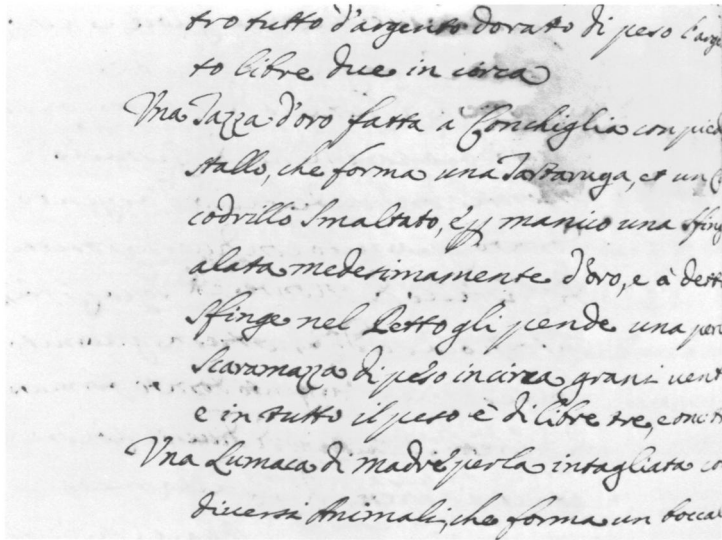 tro tutto d'argento dorato di peso l'arge
to libre due in circa
Vna Tazza d'oro fatta à Conchiglia con pied
stallo, che forma una Tartaruga, et un C
codrillo Smaltato, è p manico una sfing
alata medesimamente d'oro, e à dett
Sfinge nel Petto gli pende una per
Scaramazza di peso incirca grani vent
e in tutto il peso è di libre tre, e onc
Vna Lumaca di madreperla intagliata co
diuersi Animali, che forma un bocca